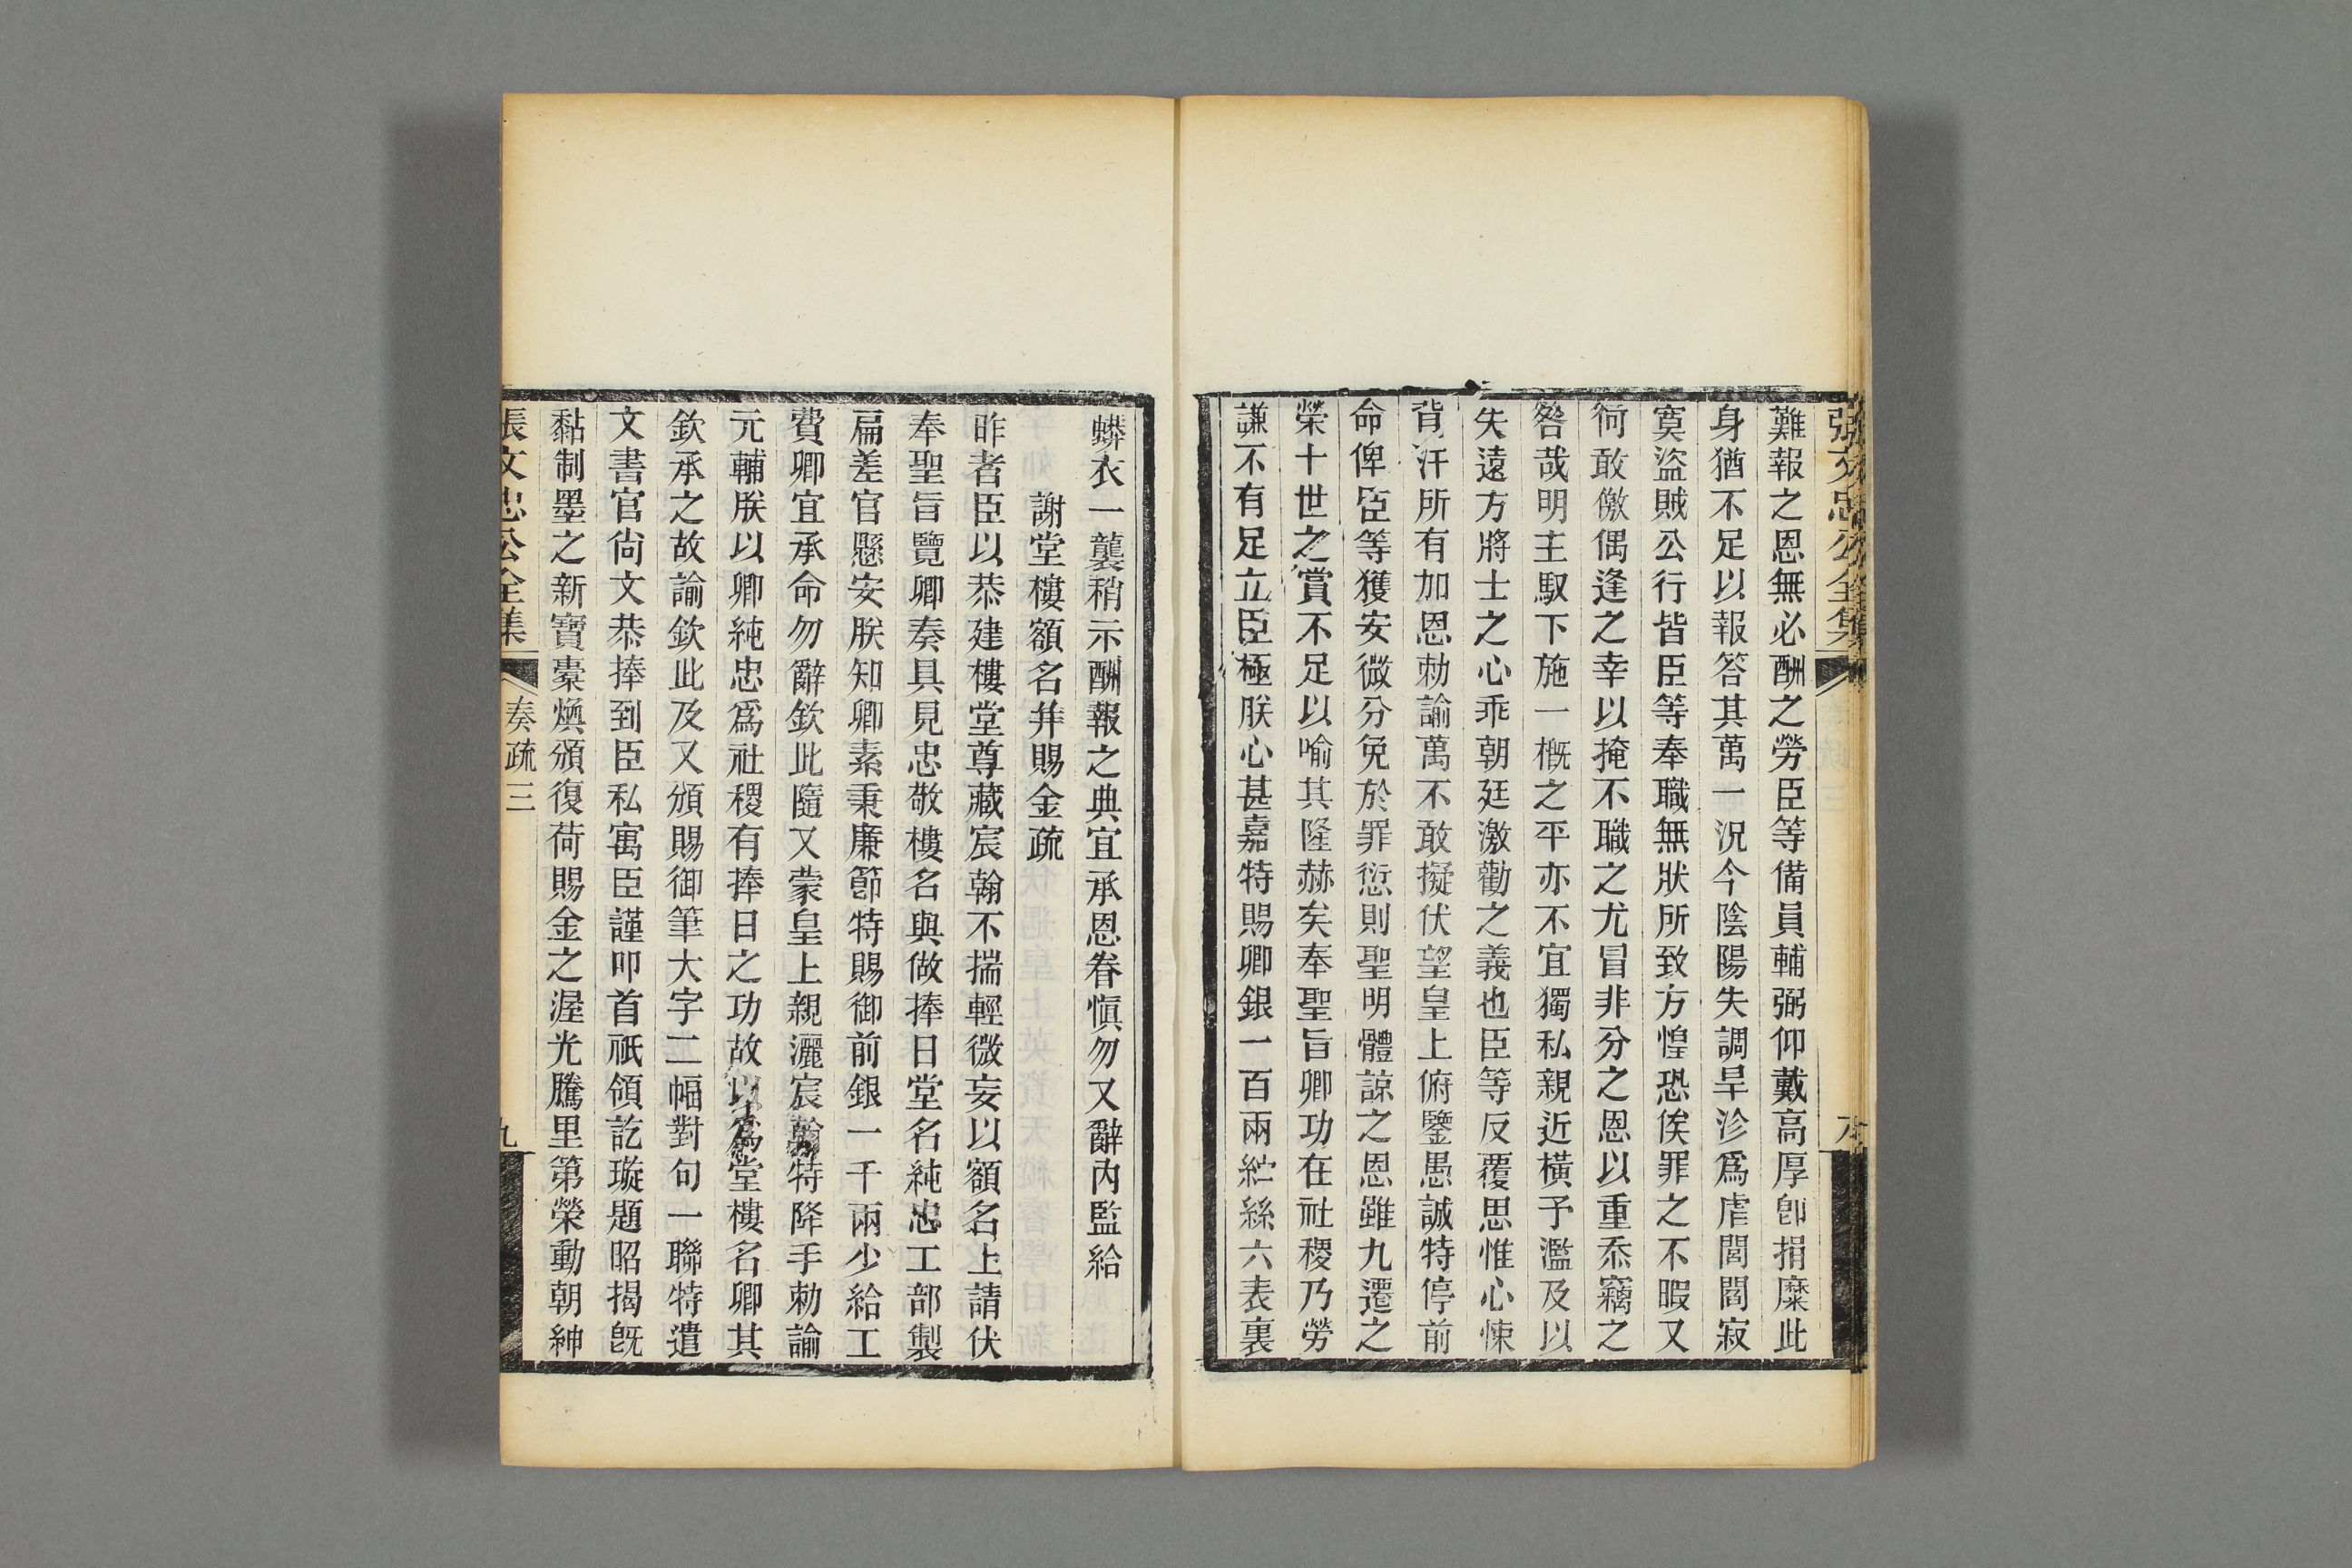 張文忠公全集
難報之恩無必酬之勞臣等備員輔弼仰戴高厚卽捐糜此
身猶不足以報答其萬一況今陰陽失調旱沴爲虐閭閻寂
寞盜賊公行皆臣等奉職無狀所致方惶恐俟罪之不暇又
何敢儌偶逢之幸以掩不職之尤冒非分之恩以重忝竊之
咎哉明主馭下施一槪之平亦不宜獨私親近橫予濫及以
失遠方將士之心乖朝廷激勸之義也臣等反覆思惟心悚
背汗所有加恩勅諭萬不敢擬伏望皇上俯鑒愚誠特停前
命俾臣等獲安微分免於罪愆則聖明體諒之恩雖九遷之
榮十世之賞不足以喻其隆赫矣奉聖旨卿功在社稷乃勞
謙不有足立臣極朕心甚嘉特賜卿銀一百兩紵絲六表裏
蟒衣一襲稍示酬報之典宜承恩眷愼勿又辭內監給
謝堂樓額名幷賜金疏
昨者臣以恭建樓堂尊藏宸翰不揣輕微妄以額名上請伏
奉聖旨覽卿奏具見忠敬樓名與做捧日堂名純忠工部製
扁差官懸安朕知卿素秉廉節特賜御前銀一千兩少給工
費卿宜承命勿辭欽此隨又蒙皇上親灑宸翰特降手勅諭
元輔朕以卿純忠爲社稷有捧日之功故以爲堂樓名卿其
欽承之故諭欽此及又頒賜御筆大字二幅對句一聯特遣
文書官尙文恭捧到臣私寓臣謹叩首祇領訖璇題昭揭旣
黏制墨之新寶橐煥頒復荷賜金之渥光騰里第榮動朝紳
張文忠公全集
奏疏三
九